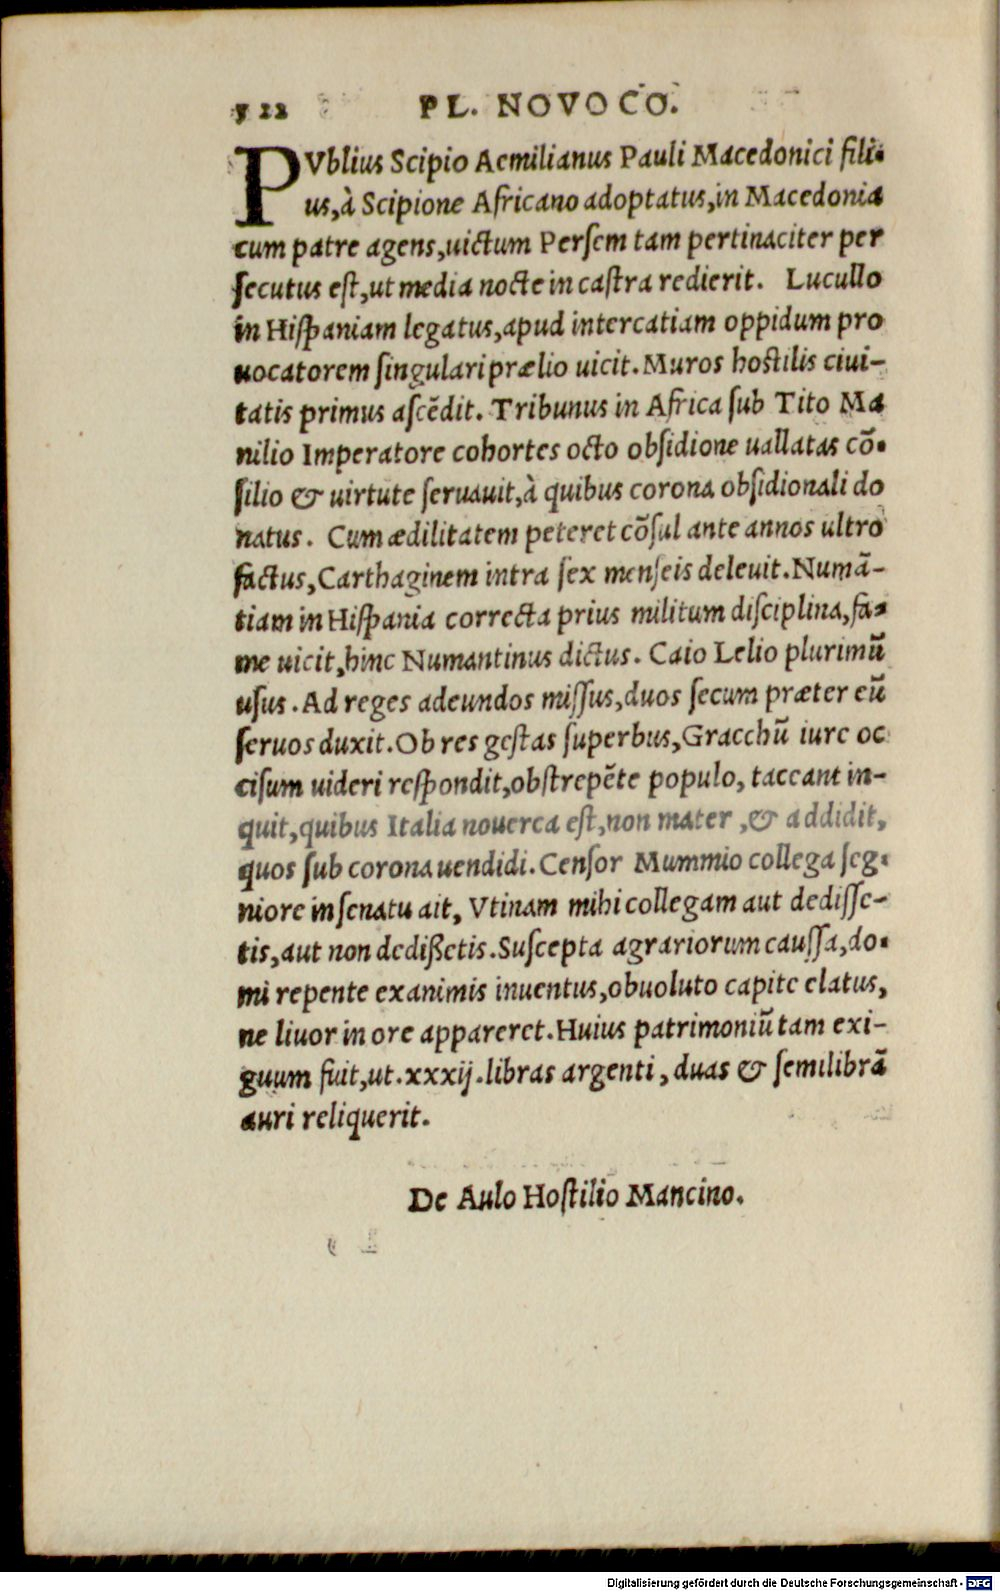 522 PL. NOVOCO.
PVblius Scipio Aemilianus Pauli Macedonici fili-
us,à Scipione Africano adoptatus,in Macedonia
cum patre agens,uictum Persem tam pertinaciter per
secutus est,ut media nocte in castra redierit. Lucullo
in Hispaniam legatus,apud intercatiam oppidum pro
uocatorem singulari prælio uicit.Muros hostilis ciui-
tatis primus ascẽdit. Tribunus in Africa sub Tito Ma
nilio Imperatore cohortes octo obsidione uallatas cõ-
silio & uirtute seruauit,à quibus corona obsidionali do
natus. Cum ædilitatem peteret cõsul ante annos ultro
factus,Carthaginem intra sex menseis deleuit.Numã-
tiam in Hispania correcta prius militum disciplina,fa-
me uicit,hinc Numantinus dictus. Caio Lelio plurimũ
usus.Ad reges adeundos missus,duos secum præter eũ
seruos duxit.Ob res gestas superbus,Gracchũ iure oc
cisum uideri respondit,obstrepẽte populo, taceant in-
quit,quibus Italia nouerca est,non mater ,& addidit,
quos sub corona uendidi.Censor Mummio collega seg-
niore in senatu ait, Vtinam mihi collegam aut dedisse-
tis,aut non dedißetis.Suscepta agrariorum caussa,do-
mi repente exanimis inuentus,obuoluto capite elatus,
ne liuor in ore appareret.Huius patrimoniũ tam exi-
guum fuit,ut.xxxij.libras argenti, duas & semilibrã
auri reliquerit.
De Aulo Hostilio Mancino.
Digitalisierung gefördert durch die Deutsche Forschungsgemeinschaft - DFG